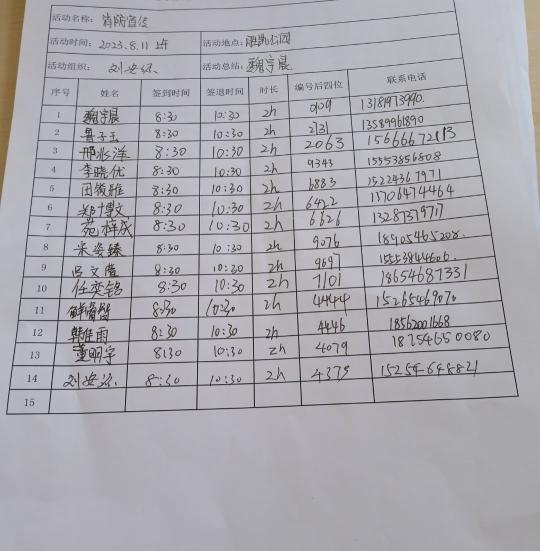 活动名称: 消防宣传
活动时间: 2023.8.11 上午 活动地点: 公园
活动组织: 刘安 活动总结: 魏宇晨
序号 姓名 签到时间 签退时间 时长 编号后四位 联系电话
1 魏宇晨 8:30 10:30 2h 0109 13181973990.
2 鲁子玉 8:30 10:30 2h 2131 13589961890
3 邢兆洋 8:30 10:30 2h 2063 15666672113
4 李晓优 8:30 10:30 2h 9343 15553856808
5 田俊雅 8:30 10:30 2h 6883 15224367971
6 郑博文 8:30 10:30 2h 6422 13706474464
7 苑梓成 8:30 10:30 2h 6626 13287379717
8 宋姿臻 8:30 10:30 2h 9076 18905465208.
9 吕文 8:30 10:30 2h 9697 15553844606.
10 任奕铭 8:30 10:30 2h 7101 18654687331
11 8:30 10:30 2h 4444 15265469070
12 韩佳雨 8:30 10:30 2h 4446 18562001668
13 董明宇 8:30 10:30 2h 4079 18754650080
14 刘安 8:30 10:30 2h 4375 15254648821
15